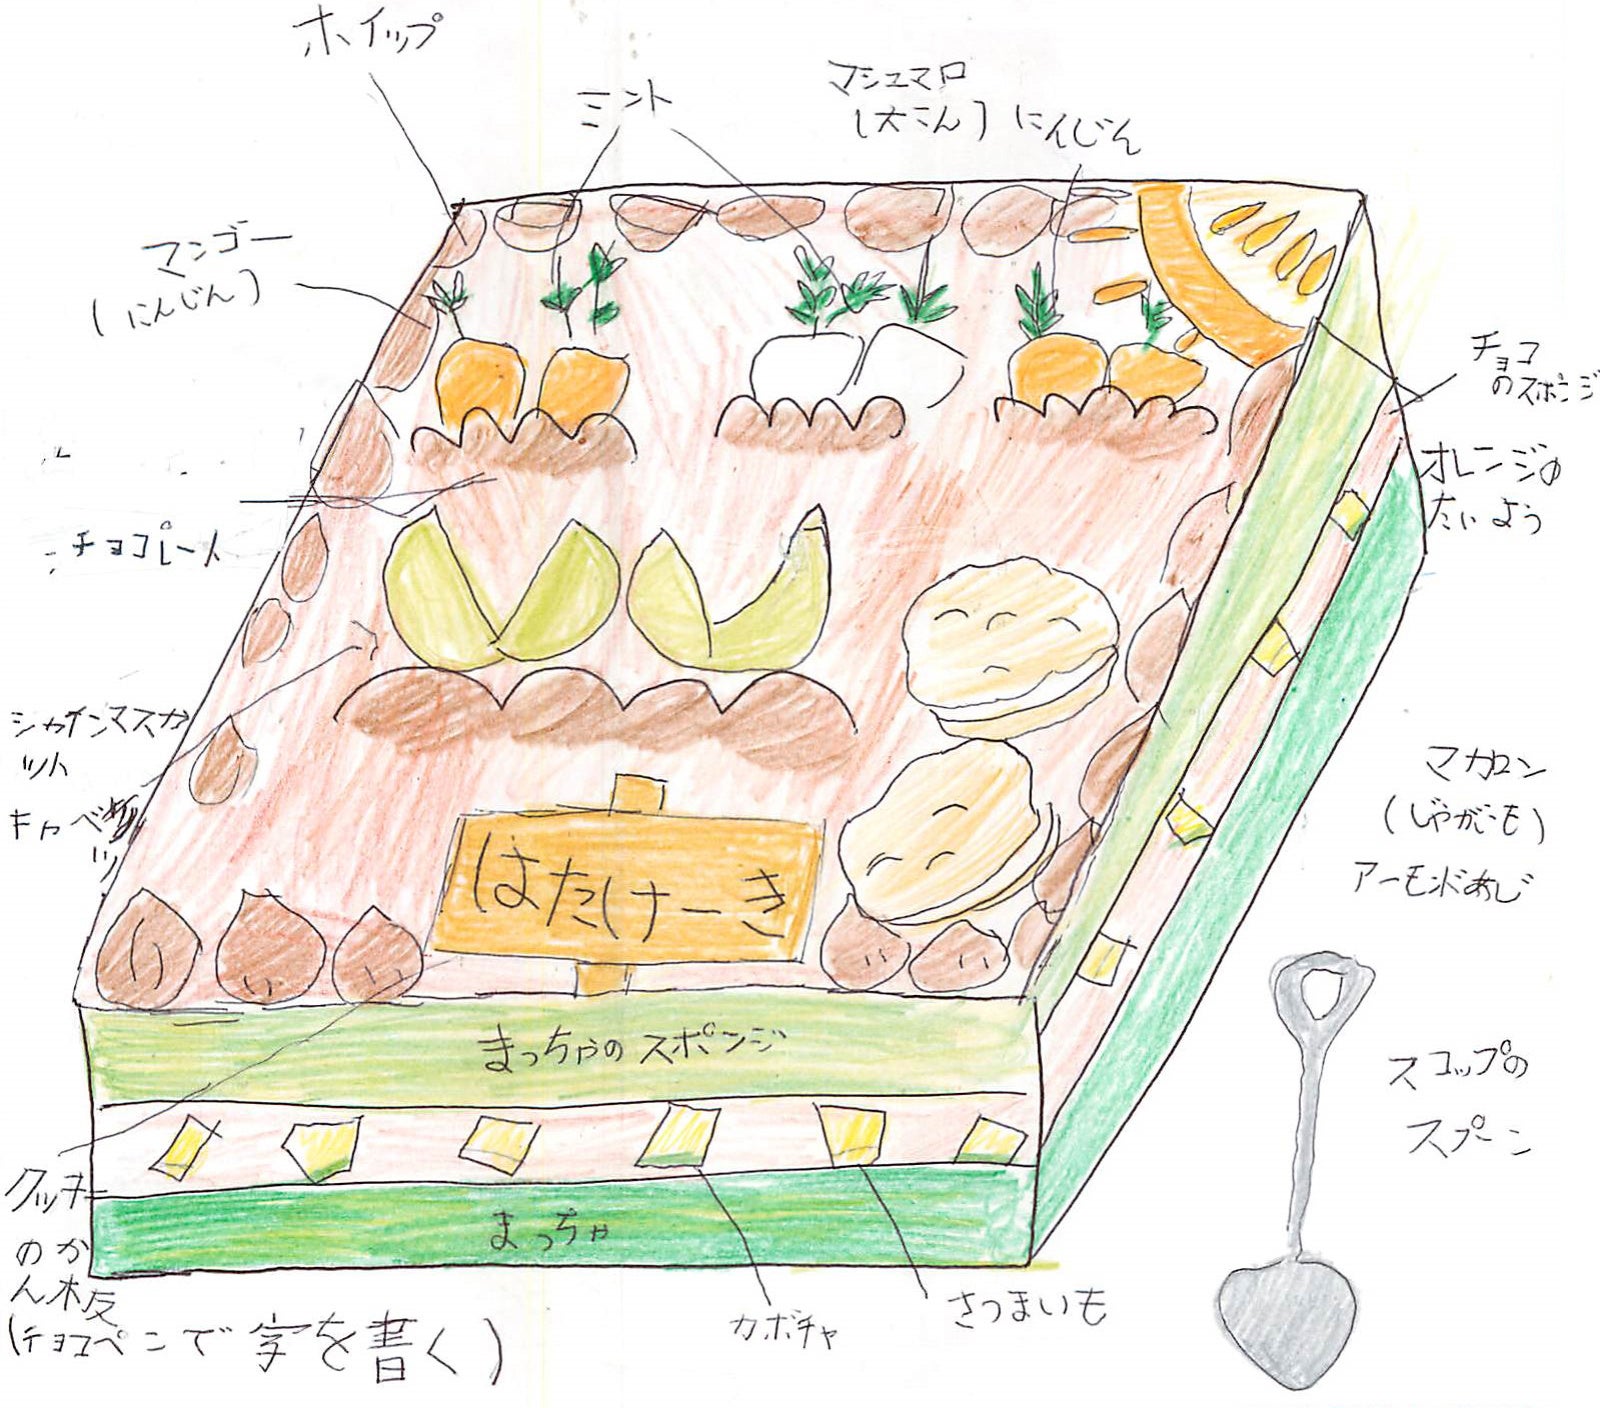 ホイップ
ミント
マシュマロ
(大こん) にんじん
マンゴー
(にんじん)
チョコ
のスポンジ
オレンジの
たいよう
チョコプレート
シャインマスカ
ット
キャベ
ツ
はたけーき
マカロン
(じゃがいも)
アーモンドあじ
まっちゃのスポンジ
スコップの
スプーン
クッキー
のか
ん板
(チョコペンで字を書く)
まっちゃ
カボチャ
さつまいも